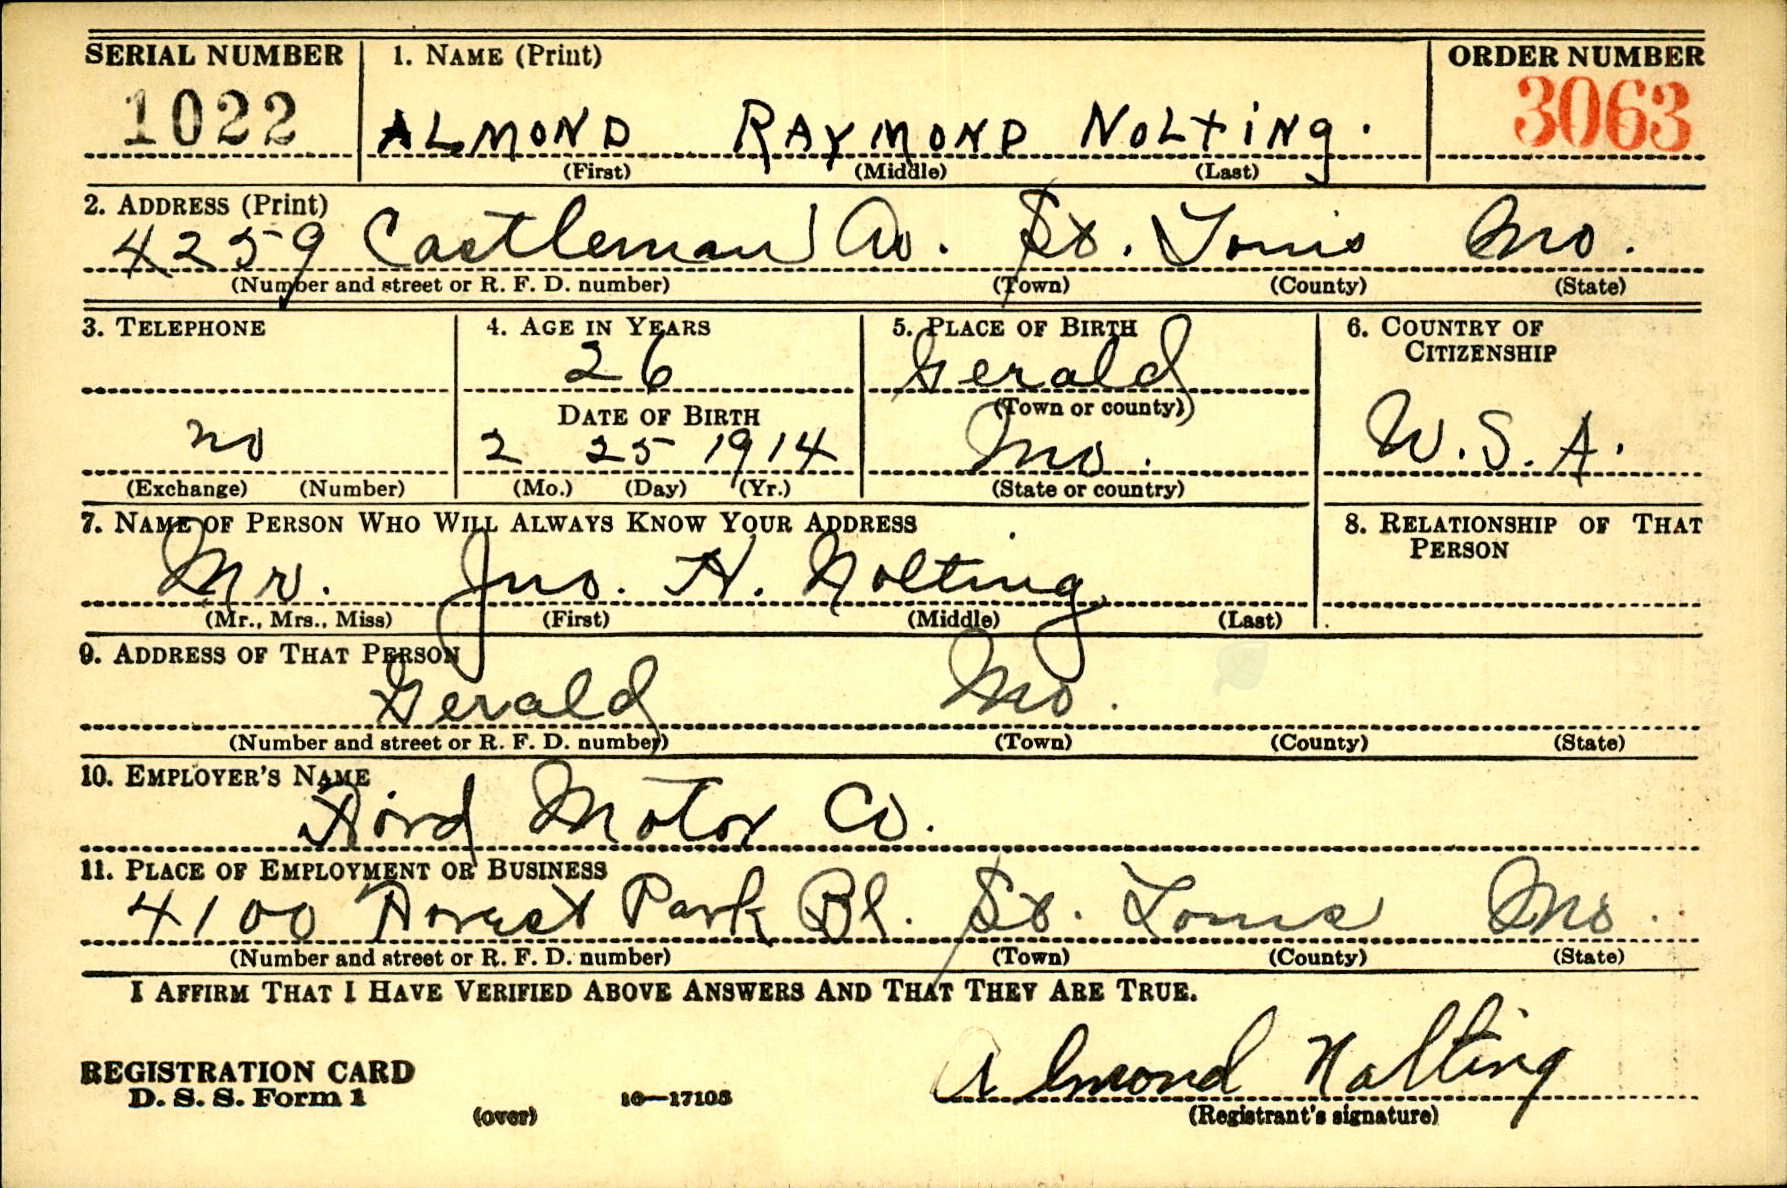 SERIAL NUMBER 1. NAME (Print) ORDER NUMBER
1022 ALMOND RAYMOND NOLTING. 3063
(First) (Middle) (Last)
2. ADDRESS (Print)
4259 Castleman Av. St. Louis Mo.
(Number and street or R. F. D. number) (Town) (County) (State)
3. TELEPHONE 4. AGE IN YEARS 5. PLACE OF BIRTH 6. COUNTRY OF CITIZENSHIP
26 Gerald
DATE OF BIRTH (Town or county)
no 2 25 1914 Mo. U.S.A.
(Exchange) (Number) (Mo.) (Day) (Yr.) (State or country)
7. NAME OF PERSON WHO WILL ALWAYS KNOW YOUR ADDRESS 8. RELATIONSHIP OF THAT PERSON
Mr. Jno. H. Nolting
(Mr., Mrs., Miss) (First) (Middle) (Last)
9. ADDRESS OF THAT PERSON
Gerald Mo.
(Number and street or R. F. D. number) (Town) (County) (State)
10. EMPLOYER'S NAME
Ford Motor Co.
11. PLACE OF EMPLOYMENT OR BUSINESS
4100 Forest Park Bl. St. Louis Mo.
(Number and street or R. F. D. number) (Town) (County) (State)
I AFFIRM THAT I HAVE VERIFIED ABOVE ANSWERS AND THAT THEY ARE TRUE.
Almond Nolting
REGISTRATION CARD
D. S. S. Form 1 (over) 16—17105 (Registrant's signature)